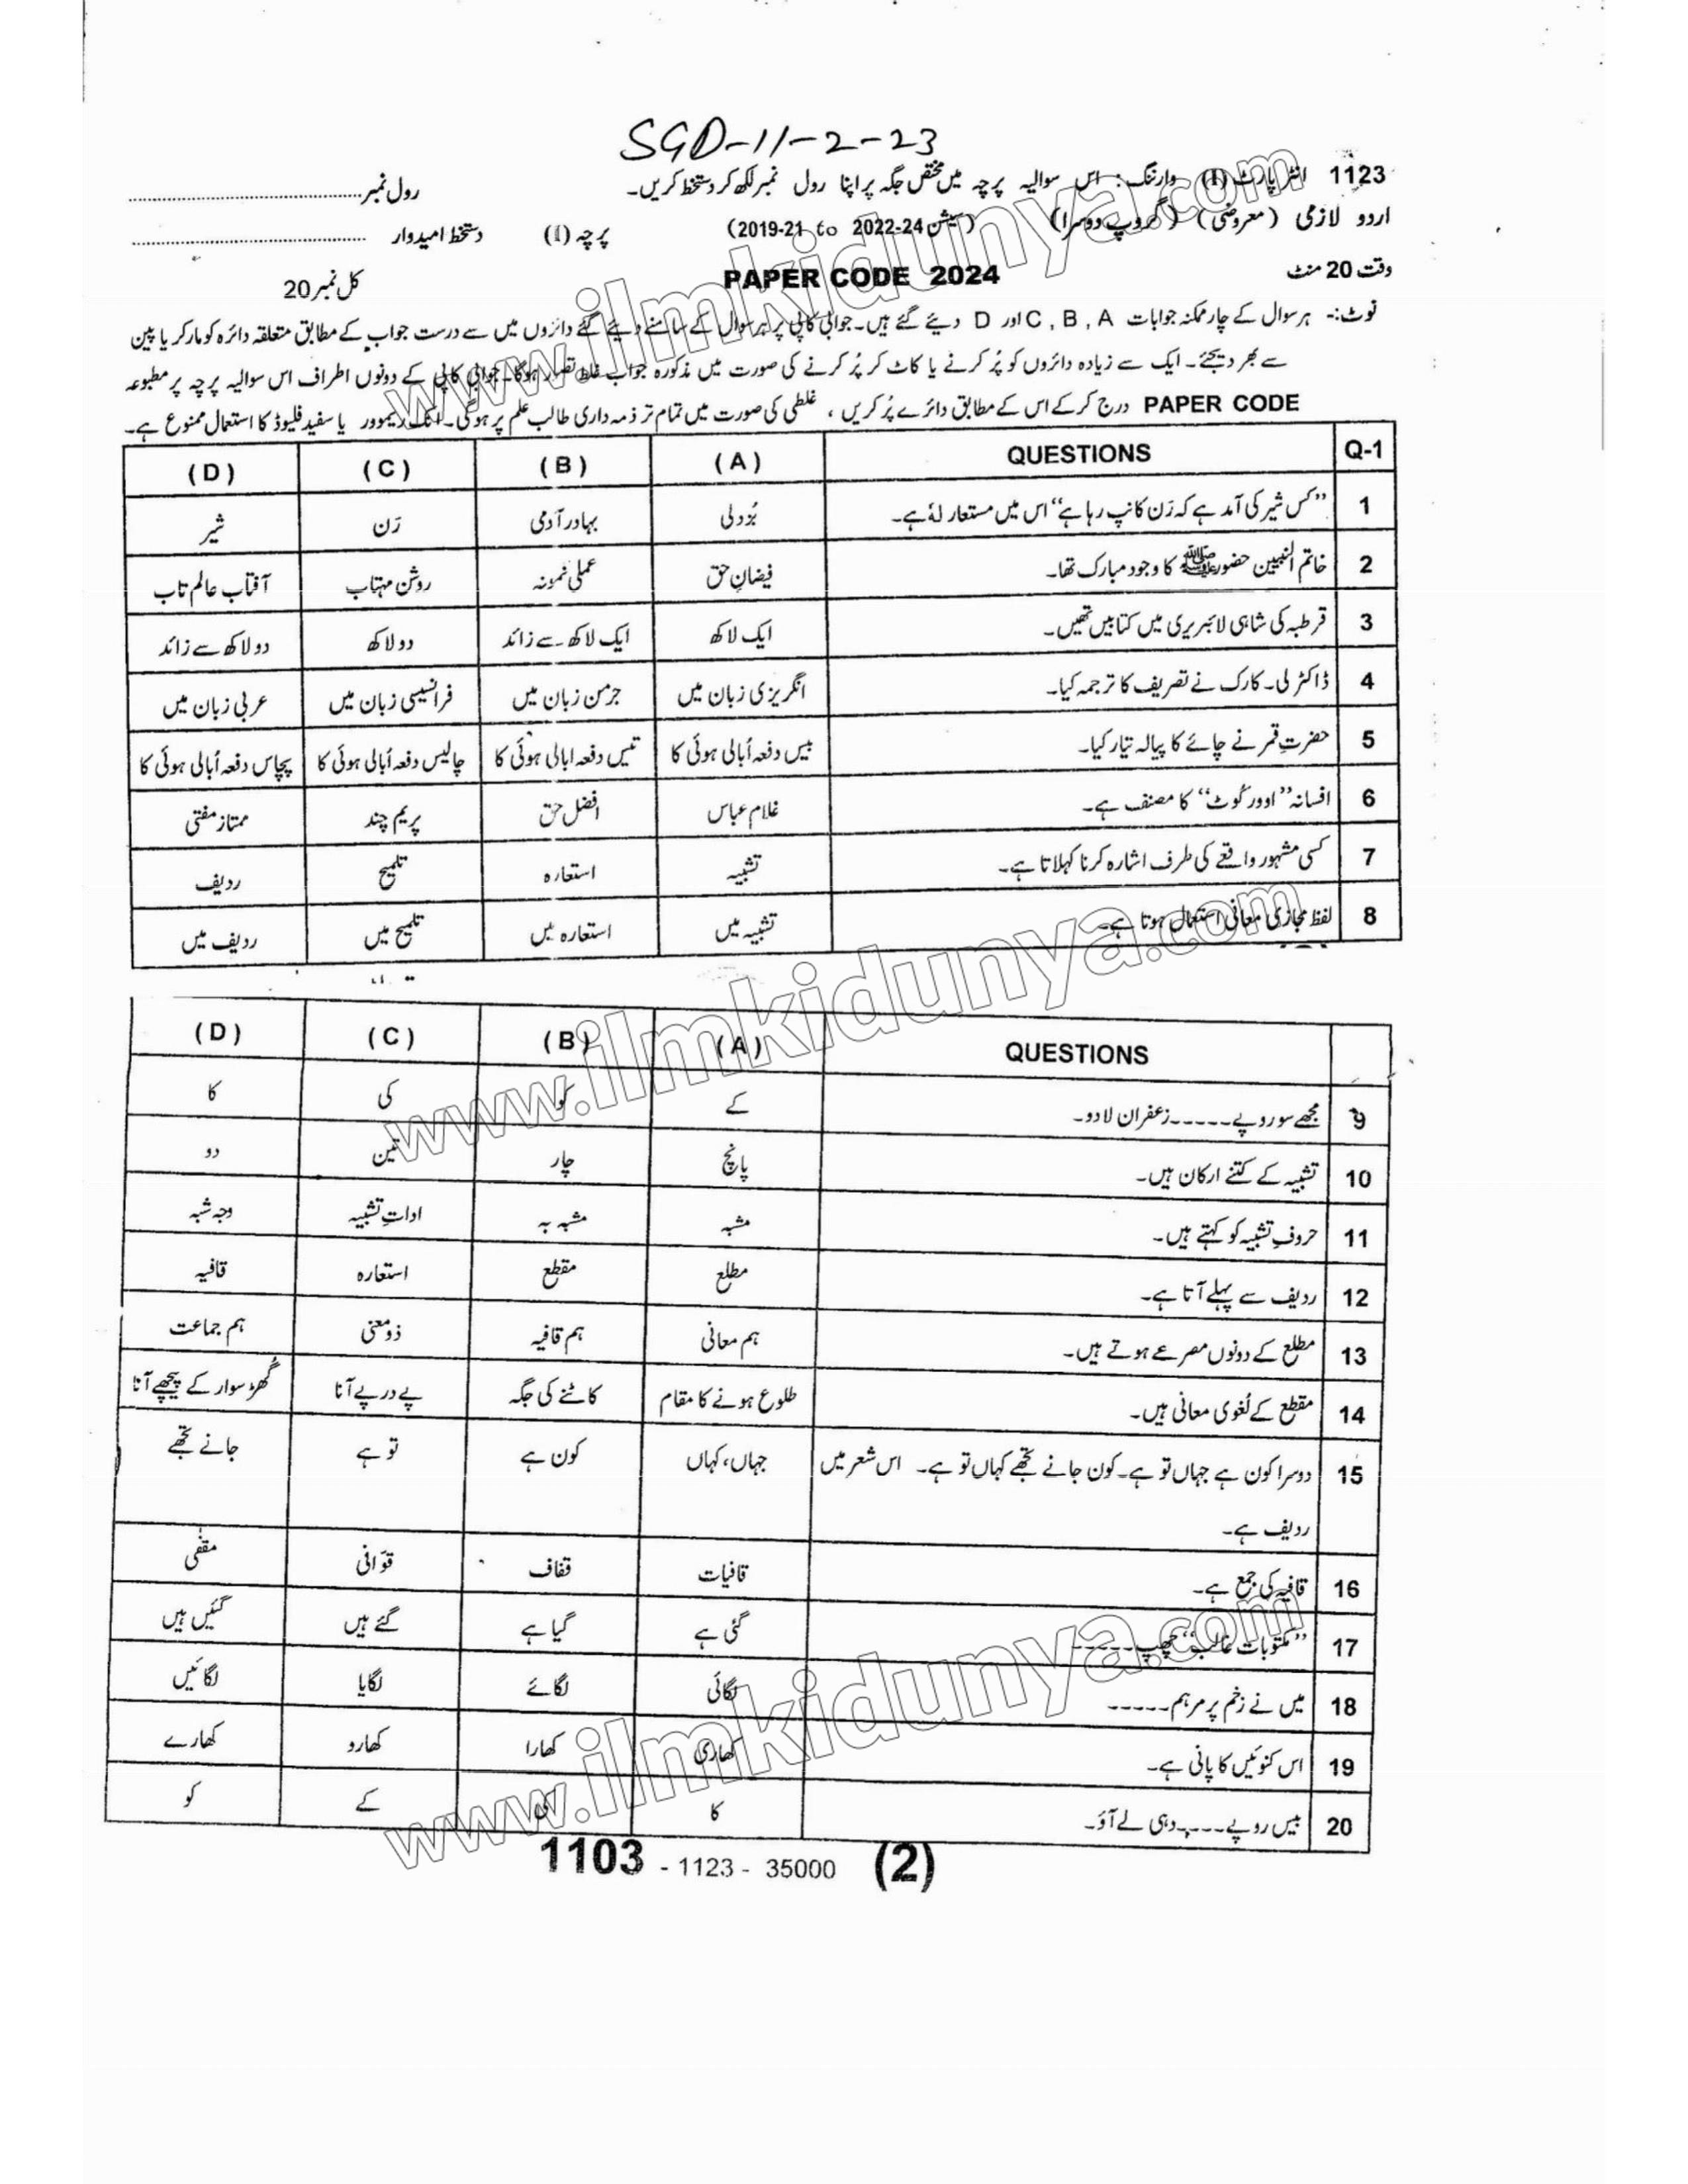 SGD-11-2-23
1123 انٹر پارٹ (I) وارننگ: اس سوالیہ پرچہ میں مختص جگہ پر اپنا رول نمبر لکھ کر دستخط کریں۔ رول نمبر
اردو لازمی (معروضی) (گروپ دوسرا) (سیشن 2019-21 to 2022-24) پرچہ (I) دستخط امیدوار
وقت 20 منٹ PAPER CODE 2024 کل نمبر 20
نوٹ:۔ ہر سوال کے چار ممکنہ جوابات A , B , C اور D دیئے گئے ہیں۔ جوابی کاپی پر ہر سوال کے سامنے دیئے گئے دائروں میں سے درست جواب کے مطابق متعلقہ دائرہ کو مارکر یا پین
سے بھر دیجئے۔ ایک سے زیادہ دائروں کو پُر کرنے یا کاٹ کر پُر کرنے کی صورت میں مذکورہ جواب غلط تصور ہوگا۔ جوابی کاپی کے دونوں اطراف اس سوالیہ پرچہ پر مطبوعہ
PAPER CODE درج کر کے اس کے مطابق دائرے پُر کریں ، غلطی کی صورت میں تمام تر ذمہ داری طالب علم پر ہوگی۔ انک ریموور یا سفید فلیوڈ کا استعمال ممنوع ہے۔
Q-1 QUESTIONS (A) (B) (C) (D)
1 ’’کس شیر کی آمد ہے کہ رَن کانپ رہا ہے‘‘ اس میں مستعار لہٗ ہے۔ بُزدلی بہادر آدمی رَن شیر
2 خاتم النبیین حضور ﷺ کا وجود مبارک تھا۔ فیضانِ حق عملی نمونہ روشن مہتاب آفتاب عالم تاب
3 قرطبہ کی شاہی لائبریری میں کتابیں تھیں۔ ایک لاکھ ایک لاکھ سے زائد دو لاکھ دو لاکھ سے زائد
4 ڈاکٹر لی۔ کارک نے تصریف کا ترجمہ کیا۔ انگریزی زبان میں جرمن زبان میں فرانسیسی زبان میں عربی زبان میں
5 حضرت قمر نے چائے کا پیالہ تیار کیا۔ بیس دفعہ اُبالی ہوئی کا تیس دفعہ ابالی ہوئی کا چالیس دفعہ اُبالی ہوئی کا پچاس دفعہ اُبالی ہوئی کا
6 افسانہ ’’اوور کوٹ‘‘ کا مصنف ہے۔ غلام عباس افضل حق پریم چند ممتاز مفتی
7 کسی مشہور واقعے کی طرف اشارہ کرنا کہلاتا ہے۔ تشبیہ استعارہ تلمیح ردیف
8 لفظ مجازی معانی استعمال ہوتا ہے۔ تشبیہ میں استعارہ میں تلمیح میں ردیف میں
QUESTIONS (A) (B) (C) (D)
9 مجھے سو روپے-----زعفران لا دو۔ کے کو کی کا
10 تشبیہ کے کتنے ارکان ہیں۔ پانچ چار تین دو
11 حروفِ تشبیہ کو کہتے ہیں۔ مشبہ مشبہ بہ اداتِ تشبیہ وجہ شبہ
12 ردیف سے پہلے آتا ہے۔ مطلع مقطع استعارہ قافیہ
13 مطلع کے دونوں مصرعے ہوتے ہیں۔ ہم معانی ہم قافیہ ذو معنی ہم جماعت
14 مقطع کے لُغوی معانی ہیں۔ طلوع ہونے کا مقام کاٹنے کی جگہ پے در پے آنا گُھڑ سوار کے پیچھے آنا
15 دوسرا کون ہے جہاں تو ہے۔ کون جانے تجھے کہاں تو ہے۔ اس شعر میں جہاں، کہاں کون ہے تو ہے جانے تجھے
ردیف ہے۔
16 قافیہ کی جمع ہے۔ قافیات قفاف قوافی مقفٰی
17 ’’مکتوبات غالب‘‘ چھپ----- گئی ہے گیا ہے گئے ہیں گئیں ہیں
18 میں نے زخم پر مرہم----- لگائی لگائے لگایا لگائیں
19 اس کنوئیں کا پانی ہے۔ کھاری کھارا کھارو کھارے
20 بیس روپے-----دہی لے آؤ۔ کا کی کے کو
1103 - 1123 - 35000 (2)
www.ilmkidunya.com
www.ilmkidunya.com
www.ilmkidunya.com